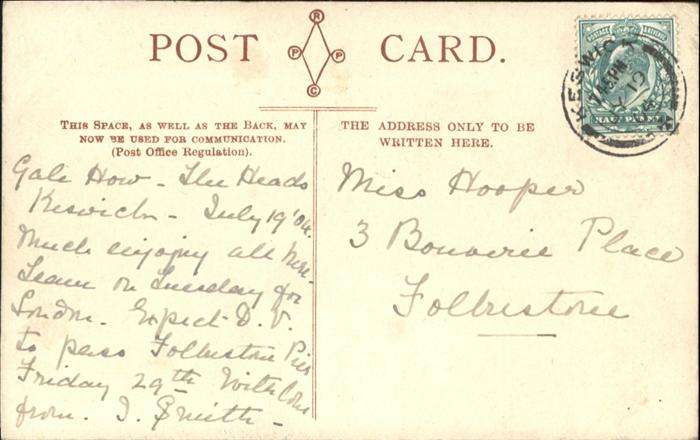 POST CARD.
R
P P
C
THIS SPACE, AS WELL AS THE BACK, MAY
NOW BE USED FOR COMMUNICATION.
(Post Office Regulation).
Gale How - The Heads
Keswick - July 19 '04.
Much enjoying all here.
Leave on Tuesday for
London. Expect D.V.
to pass Folkestone Pier
Friday 29th With love
from. J. Smith -
THE ADDRESS ONLY TO BE
WRITTEN HERE.
Miss Hooper
3 Bouverie Place
Folkestone
POSTAGE REVENUE
HALF PENNY
KESWICK
7.45 PM